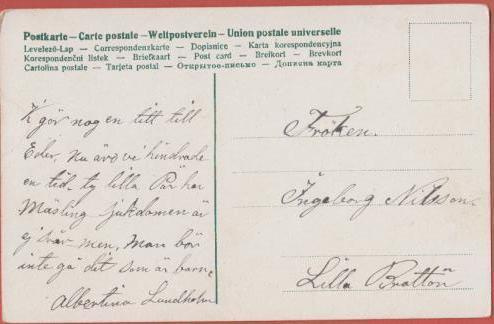 Postkarte – Carte postale – Weltpostverein – Union postale universelle
Levelező-Lap — Correspondenzkarte — Dopisnice — Karta korespondencyjna
Korespondenční listek — Briefkaart — Post card — Brefkort — Brevkort
Cartolina postale — Tarjeta postal — Открытое-письмо — Дописна карта
V gör nog en titt till
Eder, nu äro vi hindrade
en tid, ty lilla Pär har
Mäsling sjukdomen är
ej svår men, Man bör
inte gå dit som är barn,
Albertina Lundholm
Fröken.
Ingeborg Nilsson.
Lilla Bratton